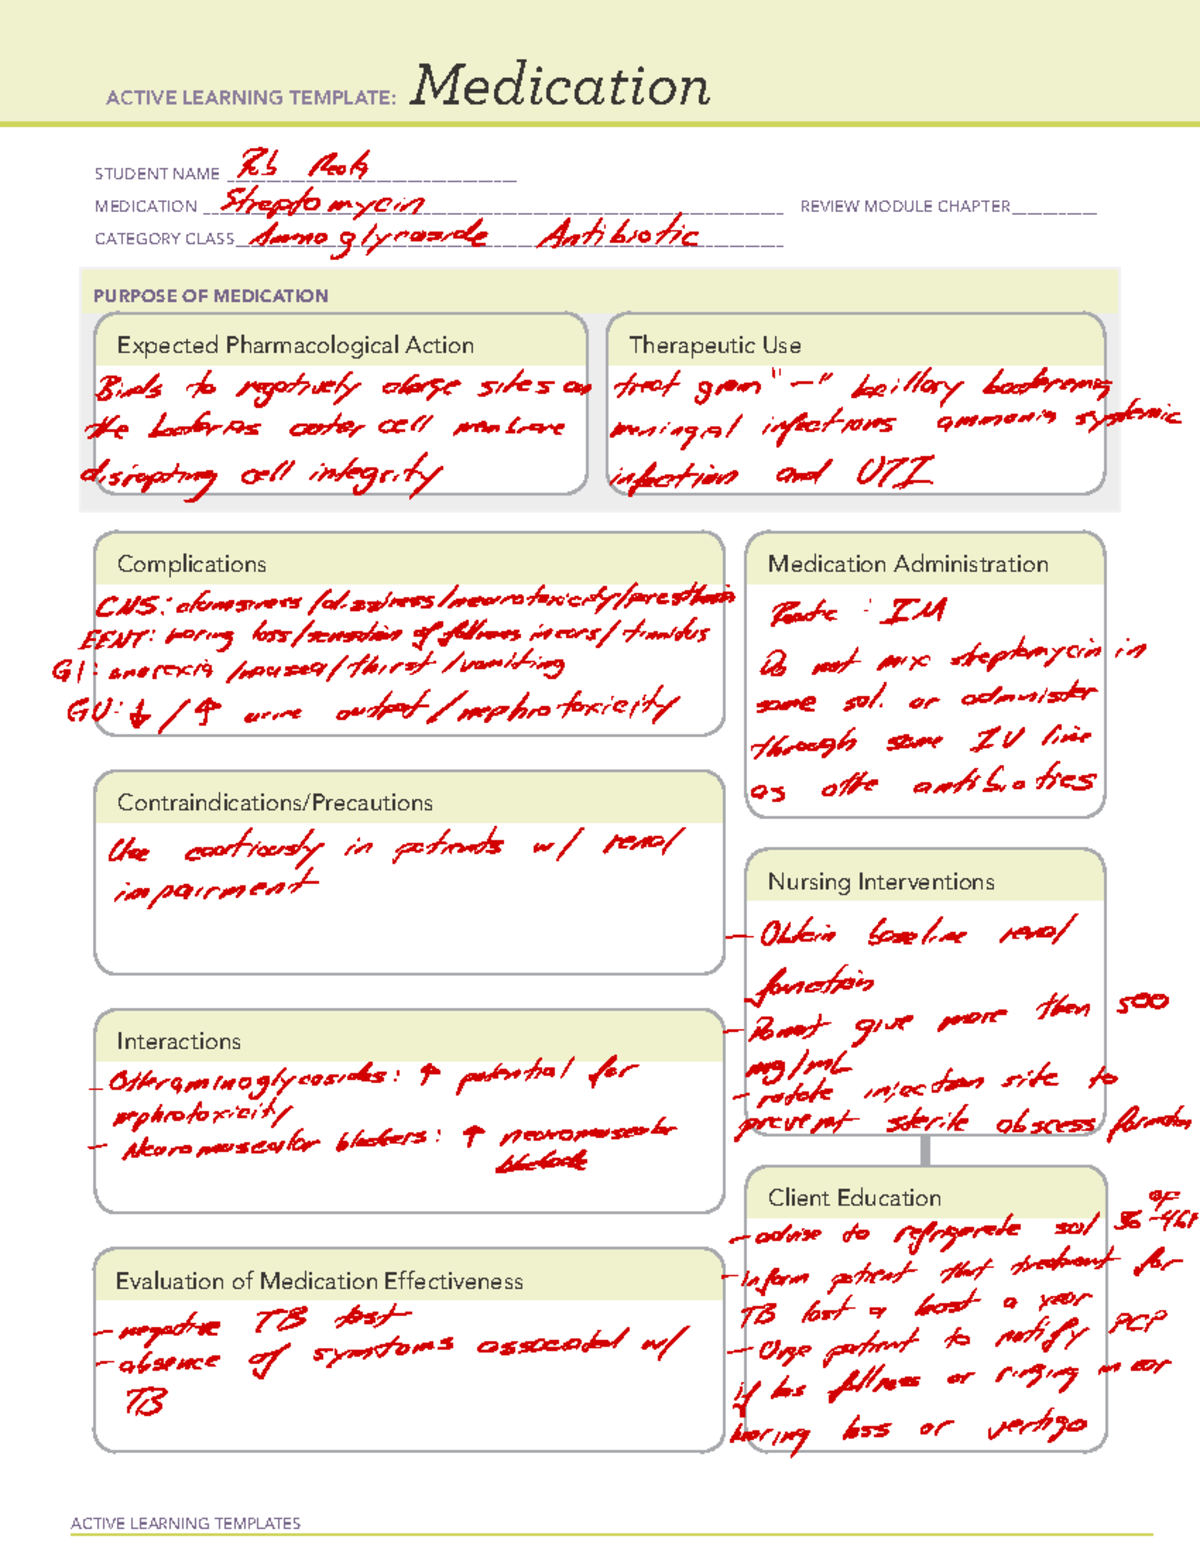 ACTIVE LEARNING TEMPLATE: Medication
STUDENT NAME
MEDICATION Streptomycin REVIEW MODULE CHAPTER
CATEGORY CLASS Aminoglycoside Antibiotic
PURPOSE OF MEDICATION
Expected Pharmacological Action
Binds to negatively charge sites on
the bacterias outer cell membrane
disrupting cell integrity
Therapeutic Use
treat gram "-" bacillary bacteremia
meningeal infections systemic
infection and UTI
Complications
CNS: clumsiness/dizziness/neurotoxicity/paresthesia
EENT: hearing loss/sensation of fullness in ears/tinnitus
GI: anorexia/nausea/thirst/vomiting
GU: ↓/↑ urine output/nephrotoxicity
Medication Administration
Route: IM
Do not mix streptomycin in
same sol. or administer
through same IV line
as othe antibiotics
Contraindications/Precautions
Use cautiously in patients w/ renal
impairment
Nursing Interventions
- Obtain baseline renal
function
- Do not give more then 500
mg/mL
- rotate injection site to
prevent sterile abscess formation
Interactions
- Other aminoglycosides: ↑ potential for
nephrotoxicity
- Neuromuscular blockers: ↑ neuromuscular
blockade
Client Education
- advise to refrigerate sol 36-46F
- Inform patient that treatment for
TB last a least a year
- Urge patient to notify PCP
if has fullness or ringing in ear
hearing loss or vertigo
Evaluation of Medication Effectiveness
- negative TB test
- absence of symptoms associated w/
TB
ACTIVE LEARNING TEMPLATES